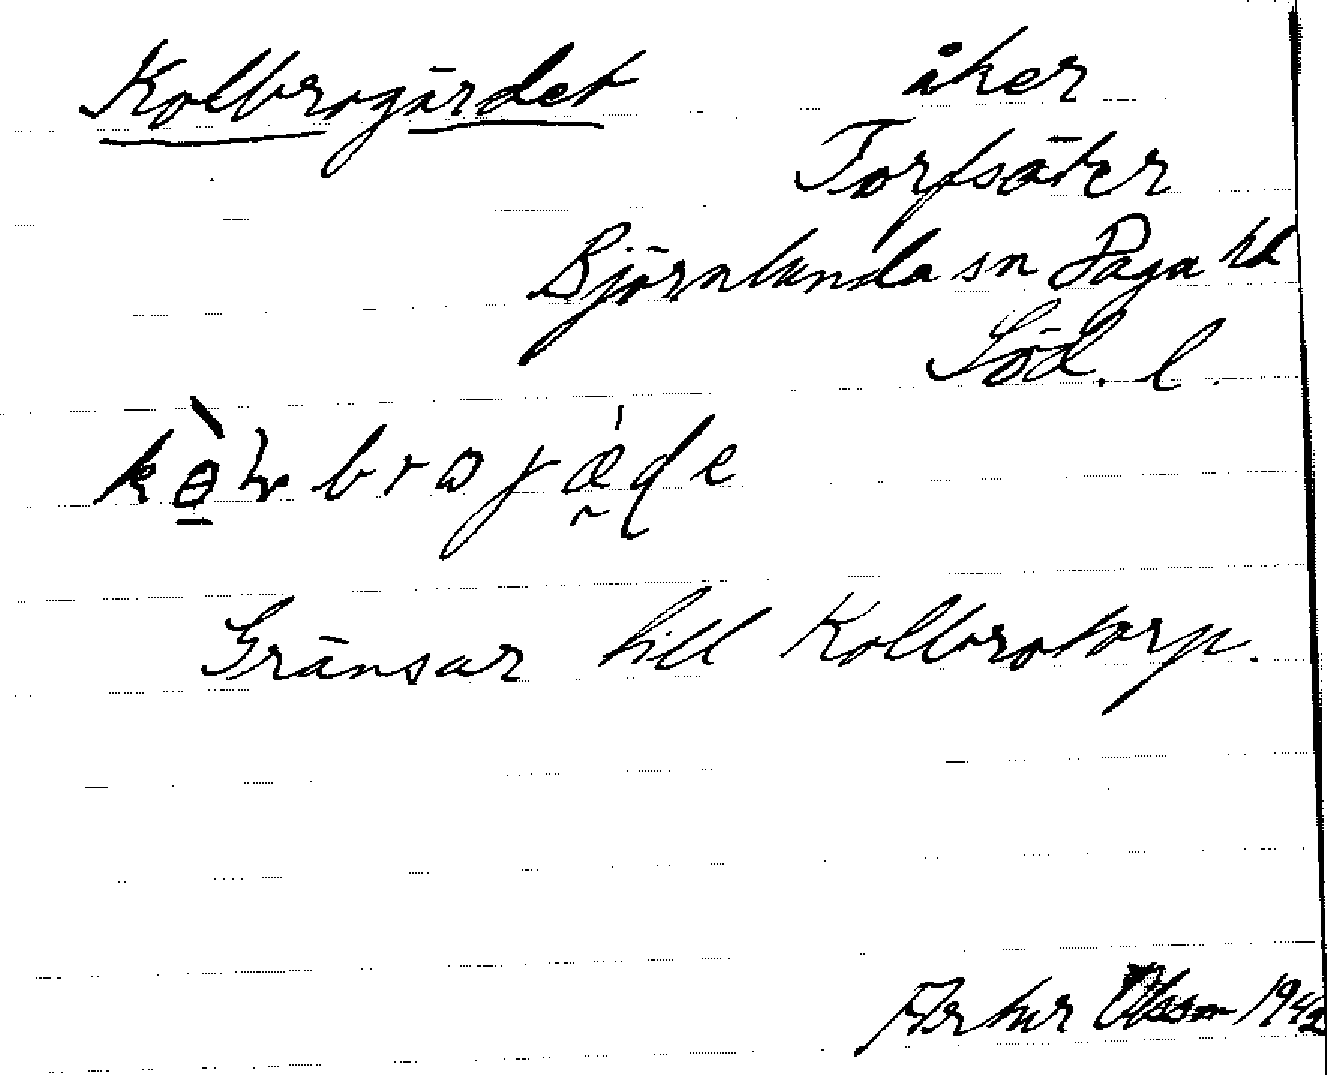 Kolbrogärdet åker
Torfsäter
Björnlunda sn Daga hd
Söd. l.
Gränsar till Kolbrotorp.
Arthur Olsson 1942